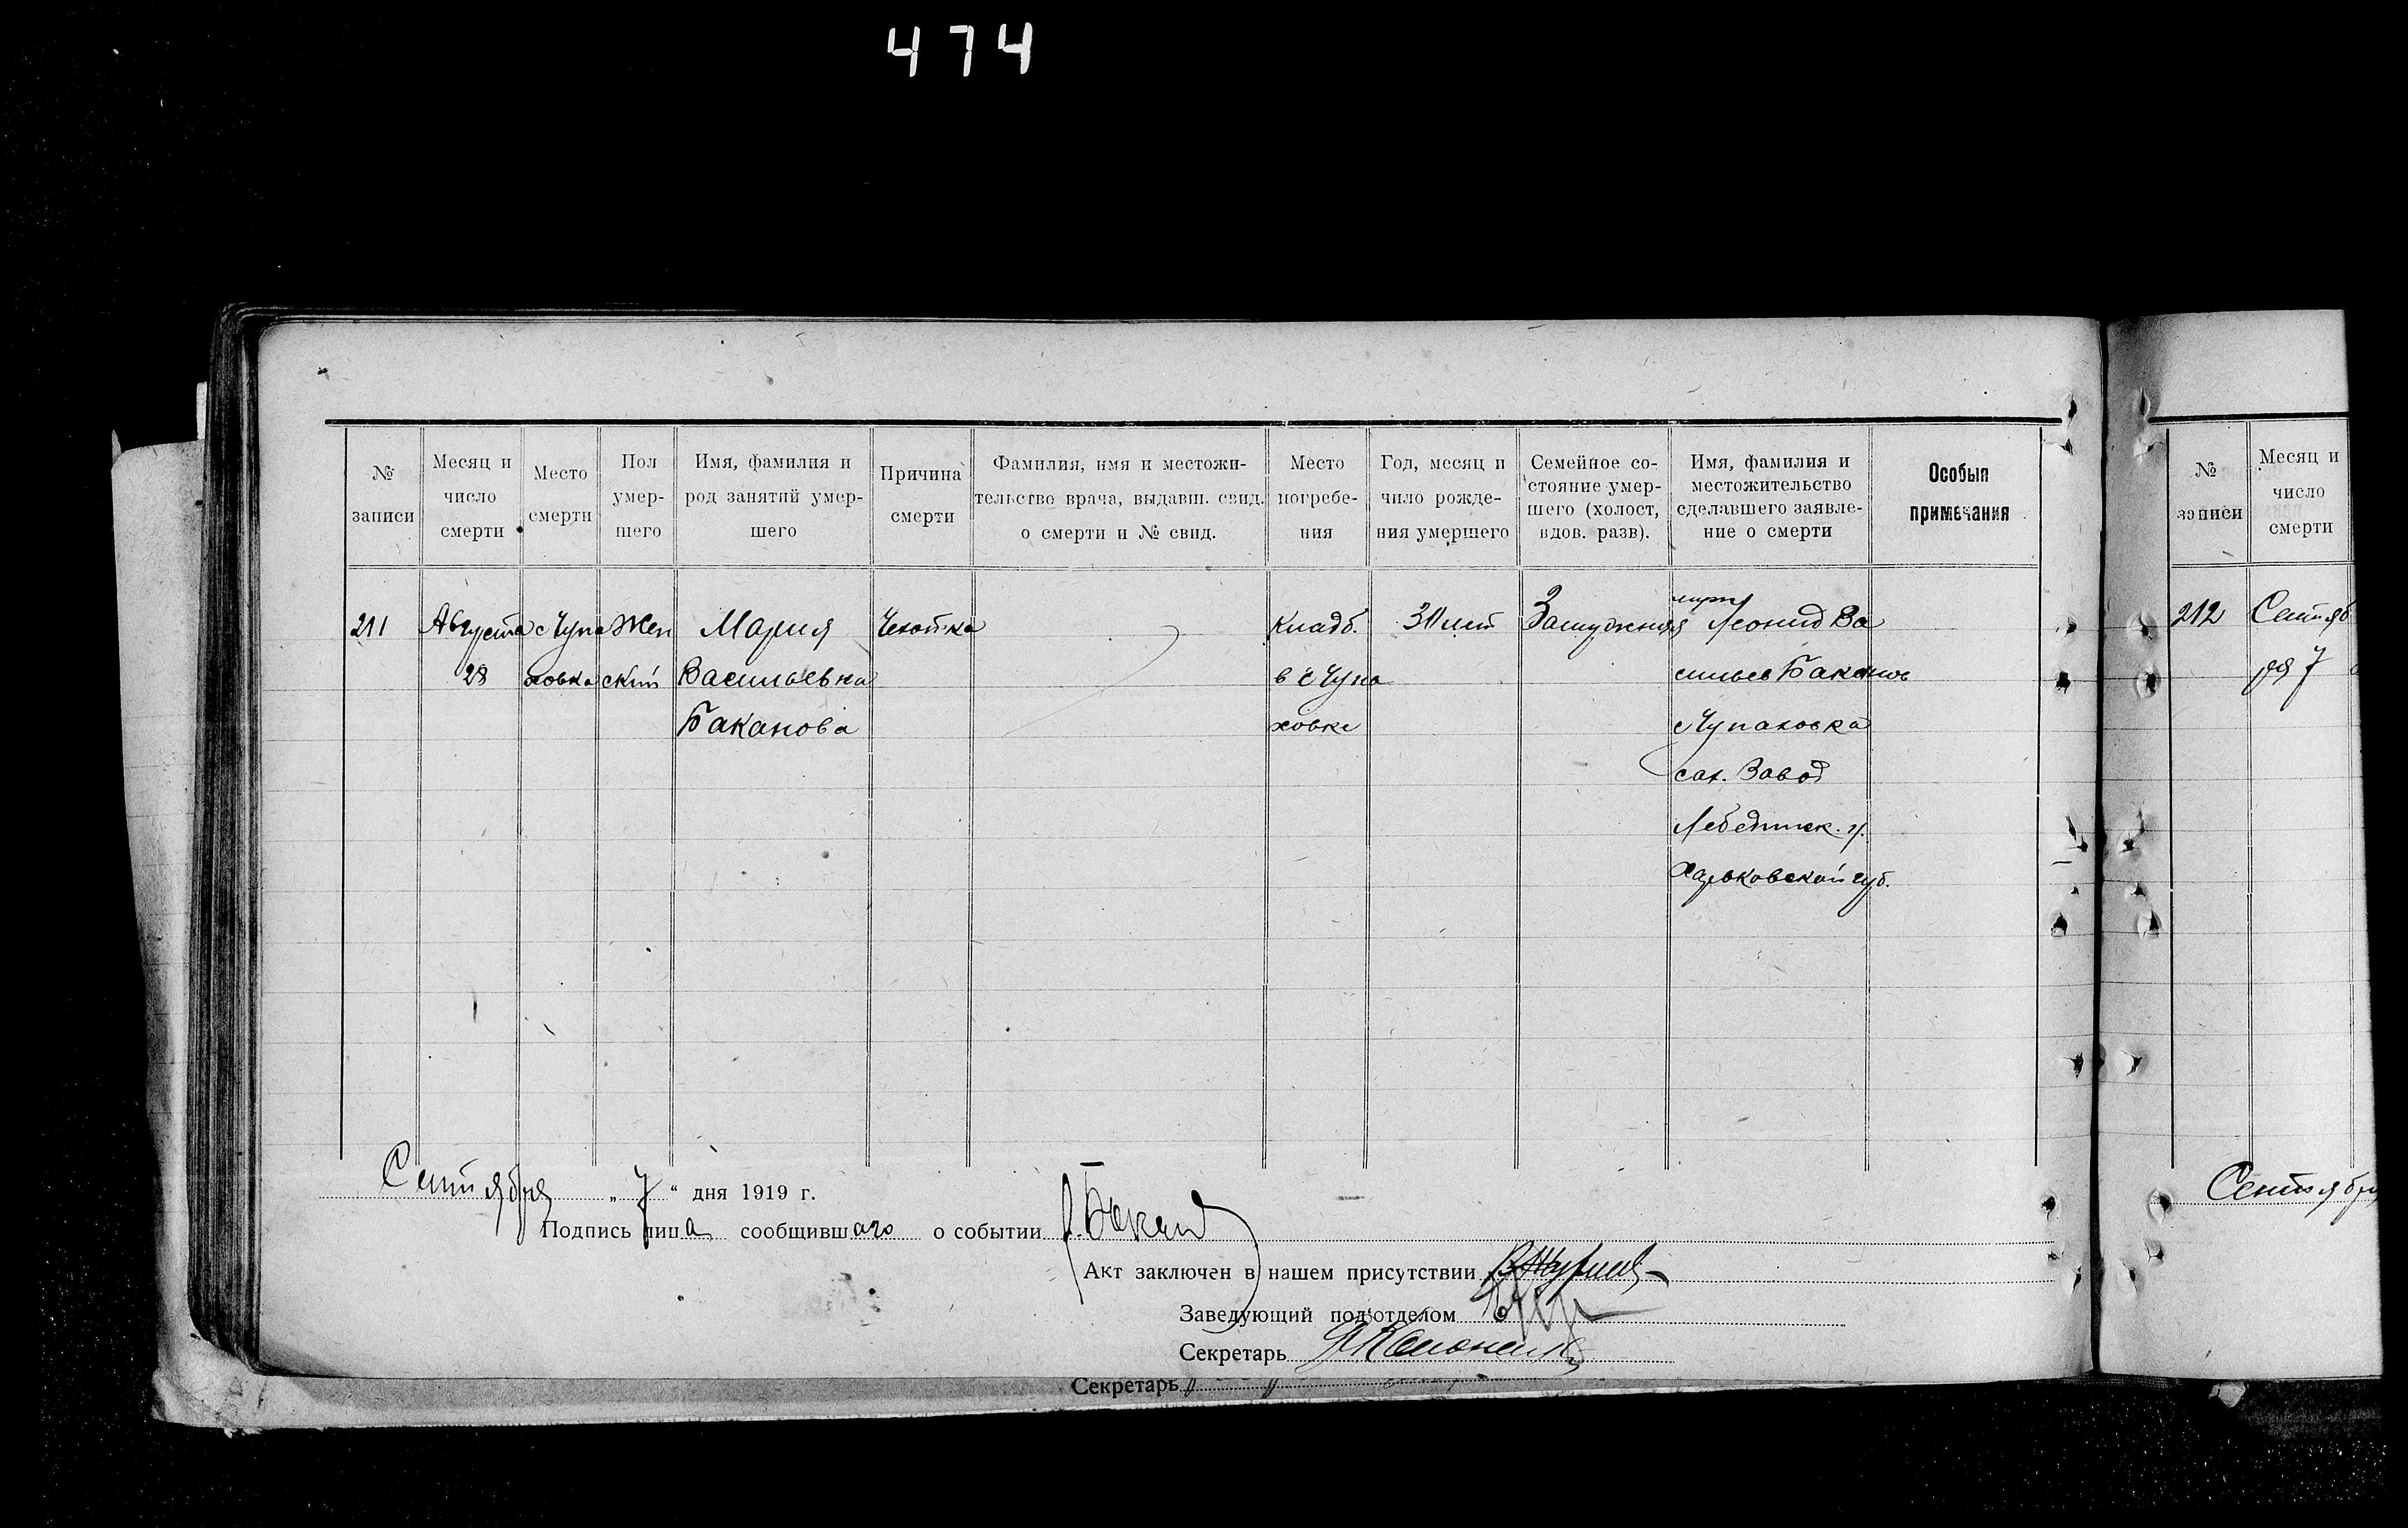 474
№ записи
Месяц и число смерти
Место смерти
Пол умер-шего
Имя, фамилия и род занятий умер-шего
Причина смерти
Фамилия, имя и местожи-тельство врача, выдавш. свид. о смерти и № свид.
Место погребе-ния
Год, месяц и чило рожде-ния умершего
Семейное со-стояние умер-шего (холост, вдов. разв).
Имя, фамилия и местожительство сделавшего заявле-ние о смерти
Особыя примечания
211
Августа
28
с Чупа
ховка
Жен
ский
Мария
Васильевна
Баканова
Чехотка
Кладб.
в с Чупа
ховке
лет
Замужняя
Леонид Ва
сильев Баканов
с Чупаховка
сах. Завод
Лебединск. у.
Харьковской губ.
Сентября „ 7 “ дня 1919 г.
Подпись лица сообщившаго о событии
Акт заключен в нашем присутствии
Заведующий подотделом
Секретарь
Секретарь
№ записи
Месяц и число смерти
212
Сентяб
ря 7
Сентября